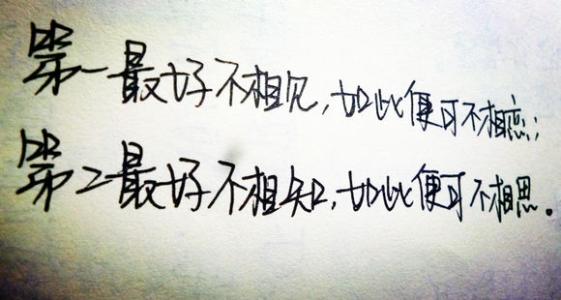 第一最好不相见,如此便可不相恋;
第二最好不相知,如此便可不相思。